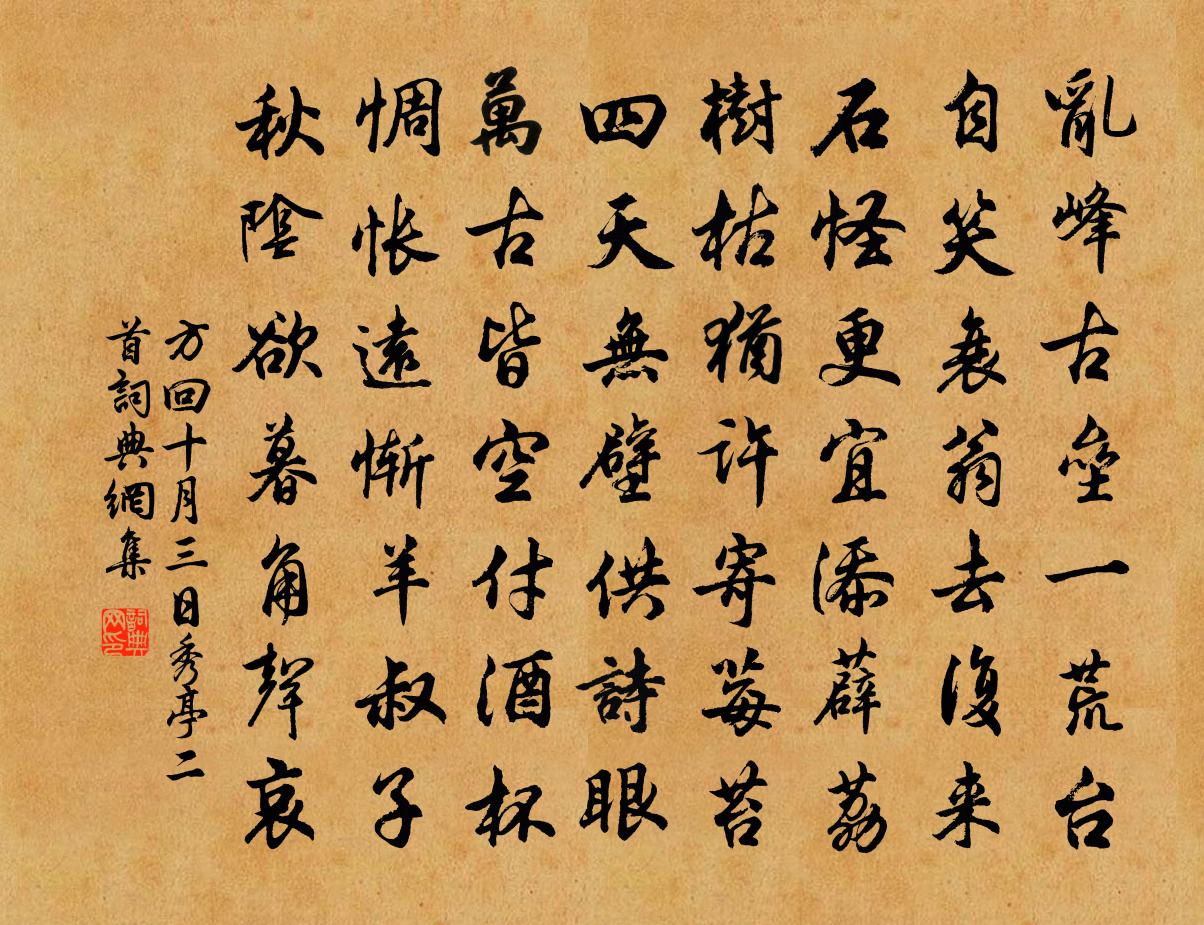 亂峰古壘一荒台
自笑衰翁去復来
石怪更宜添薜荔
樹枯猶許寄莓苔
四天無壁供詩眼
萬古皆空付酒杯
惆悵遠慚羊叔子
秋陰欲暮角聲哀
方回十月三日秀亭二
首詞典網集
詞典
网印